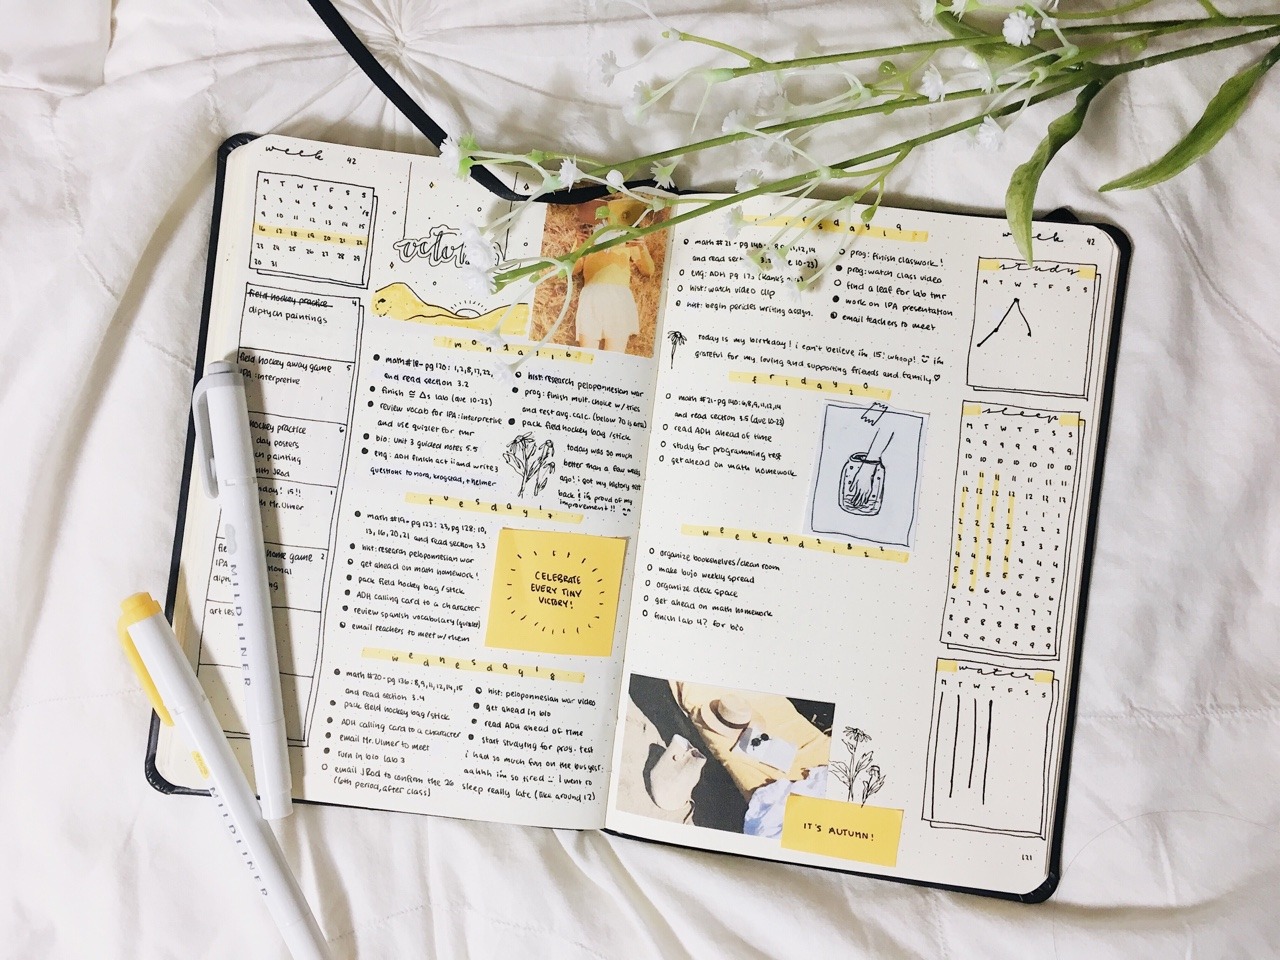 week 42
M T W T F S S
2 3 4 5 6 7 8
9 10 11 12 13 14 15
16 17 18 19 20 21 22
23 24 25 26 27 28 29
30 31
field hockey practice 4
diptych paintings
field hockey away game 5
IPA: interpretive
hockey practice 6
day posters
painting
JRod
15!!
Mr. Ulmer
home game
IPA
october
monday 16
math #18- pg 130: 1,2,8,17,22,
and read section 3.2
finish ≅ Δs lab (due 10-23)
review vocab for IPA: interpretive
and use quizlet for tmr
bio: unit 3 guided notes 5.5
eng: ADH finish act ii and write 3
questions to nora, krogstad, + helmer
hist: research peloponnesian war
prog: finish mult. choice w/ tries
and rest avg. calc. (below 70 is ora)
pack field hockey bag/stick
today was so much
better than a few weeks
ago! i got my history test
back! i'm proud of my
improvement!!
tuesday 17
math #19- pg 123: 23, pg 128: 10,
13, 16, 20, 21 and read section 3.3
hist: research peloponnesian war
get ahead on math homework!
pack field hockey bag/stick
ADH calling card to a character
review spanish vocabulary (quizlet)
email teachers to meet w/ them
CELEBRATE
EVERY TINY
VICTORY!
wednesday 18
math #20- pg 136: 8,9,11,12,14,15
and read section 3.4
pack field hockey bag/stick
ADH calling card to a character
email Mr. Ulmer to meet
turn in bio lab 3
email JRod to confirm the 26
(6th period, after class)
hist: peloponnesian war video
get ahead in bio
read ADH ahead of time
start studying for prog. test
i had so much fun on the bus yest.
aahhh i'm so tired i went to
sleep really late (like around 12)
MILDLINER
MILDLINER
thursday 19
math #21- pg 140: 8,9,11,12,14
and read section 3.5 (due 10-23)
eng: ADH pg 175
hist: watch video clip
hist: begin pericles writing assign.
prog: finish classwork!
prog: watch class video
find a leaf for lab tmr
work on IPA presentation
email teachers to meet
today is my birthday! i can't believe i'm 15! whoop! i'm
grateful for my loving and supporting friends and family ♡
friday 20
math #21- pg 140: 6,8,9,11,12,14
and read section 3.5 (due 10-23)
read ADH ahead of time
study for programming test
get ahead on math homework
weekend 21&22
organize bookshelves/clean room
make bujo weekly spread
organize desk space
get ahead on math homework
finish lab 4? for bio
IT'S AUTUMN!
week 42
study
M T W T F S S
sleep
M T W T F S S
9 9 9 9 9 9 9
10 10 10 10 10 10 10
11 11 11 11 11 11 11
12 12 12 12 12 12 12
1 1 1 1 1 1 1
2 2 2 2 2 2 2
3 3 3 3 3 3 3
4 4 4 4 4 4 4
5 5 5 5 5 5 5
6 6 6 6 6 6 6
7 7 7 7 7 7 7
8 8 8 8 8 8 8
9 9 9 9 9 9 9
water
M T W T F S S
121